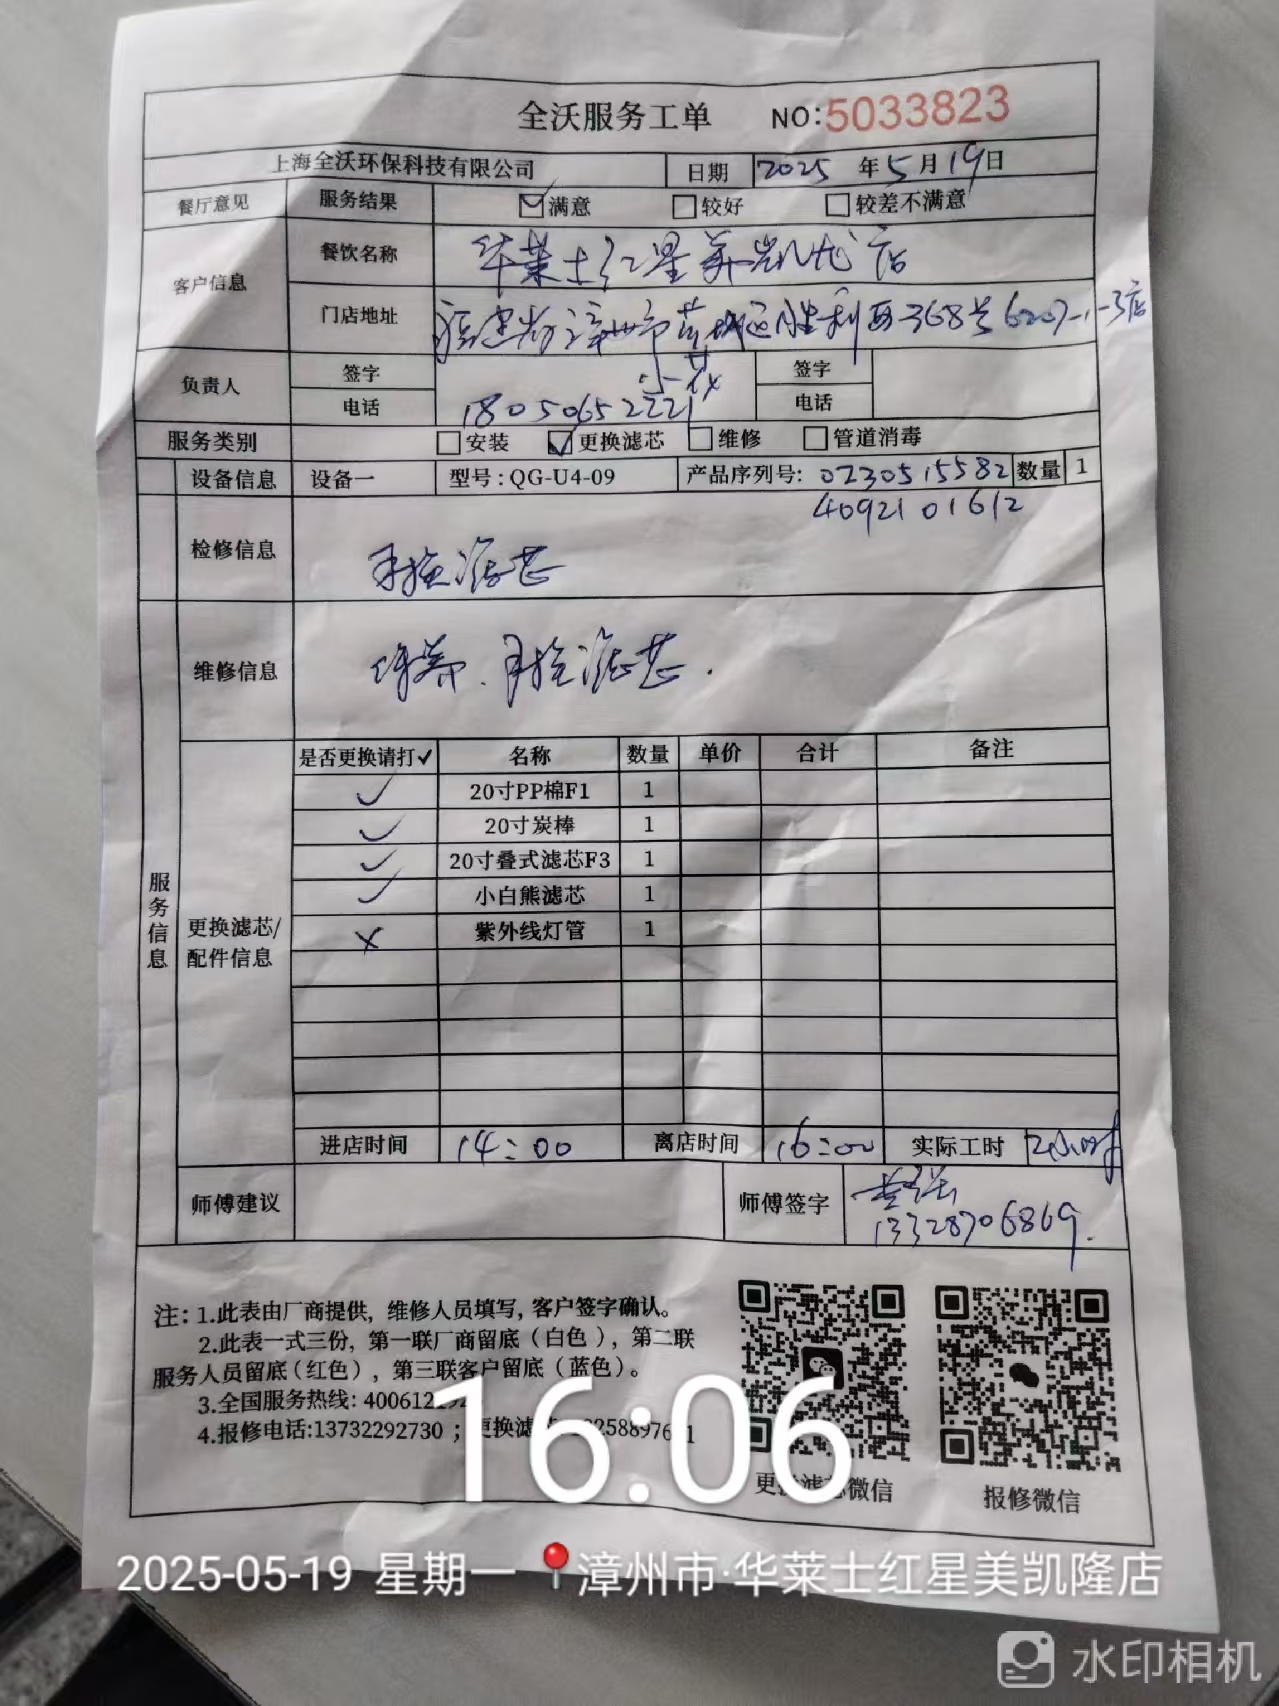 全沃服务工单 NO:5033823
上海全沃环保科技有限公司 日期 2025 年 5 月 19 日
餐厅意见 服务结果 满意 较好 较差不满意
客户信息 餐饮名称 华莱士红星美凯龙店
门店地址 福建省漳州市芗城区胜利西368号6207-1-3店
负责人 签字 签字
电话 18050652221 电话
服务类别 安装 更换滤芯 维修 管道消毒
设备信息 设备一 型号:QG-U4-09 产品序列号: 0230515582 数量 1
4092101612
检修信息 更换滤芯
维修信息 保养.更换滤芯.
服务信息
更换滤芯/配件信息
是否更换请打✓ 名称 数量 单价 合计 备注
✓ 20寸PP棉F1 1
✓ 20寸炭棒 1
✓ 20寸叠式滤芯F3 1
✓ 小白熊滤芯 1
× 紫外线灯管 1
进店时间 14:00 离店时间 16:00 实际工时 2小时
师傅建议 师傅签字
13328706869.
注: 1.此表由厂商提供, 维修人员填写, 客户签字确认。
2.此表一式三份, 第一联厂商留底(白色), 第二联
服务人员留底(红色), 第三联客户留底(蓝色)。
3.全国服务热线:
4.报修电话:13732292730 ;
更换滤芯微信 报修微信
16:06
2025-05-19 星期一 漳州市·华莱士红星美凯隆店
水印相机